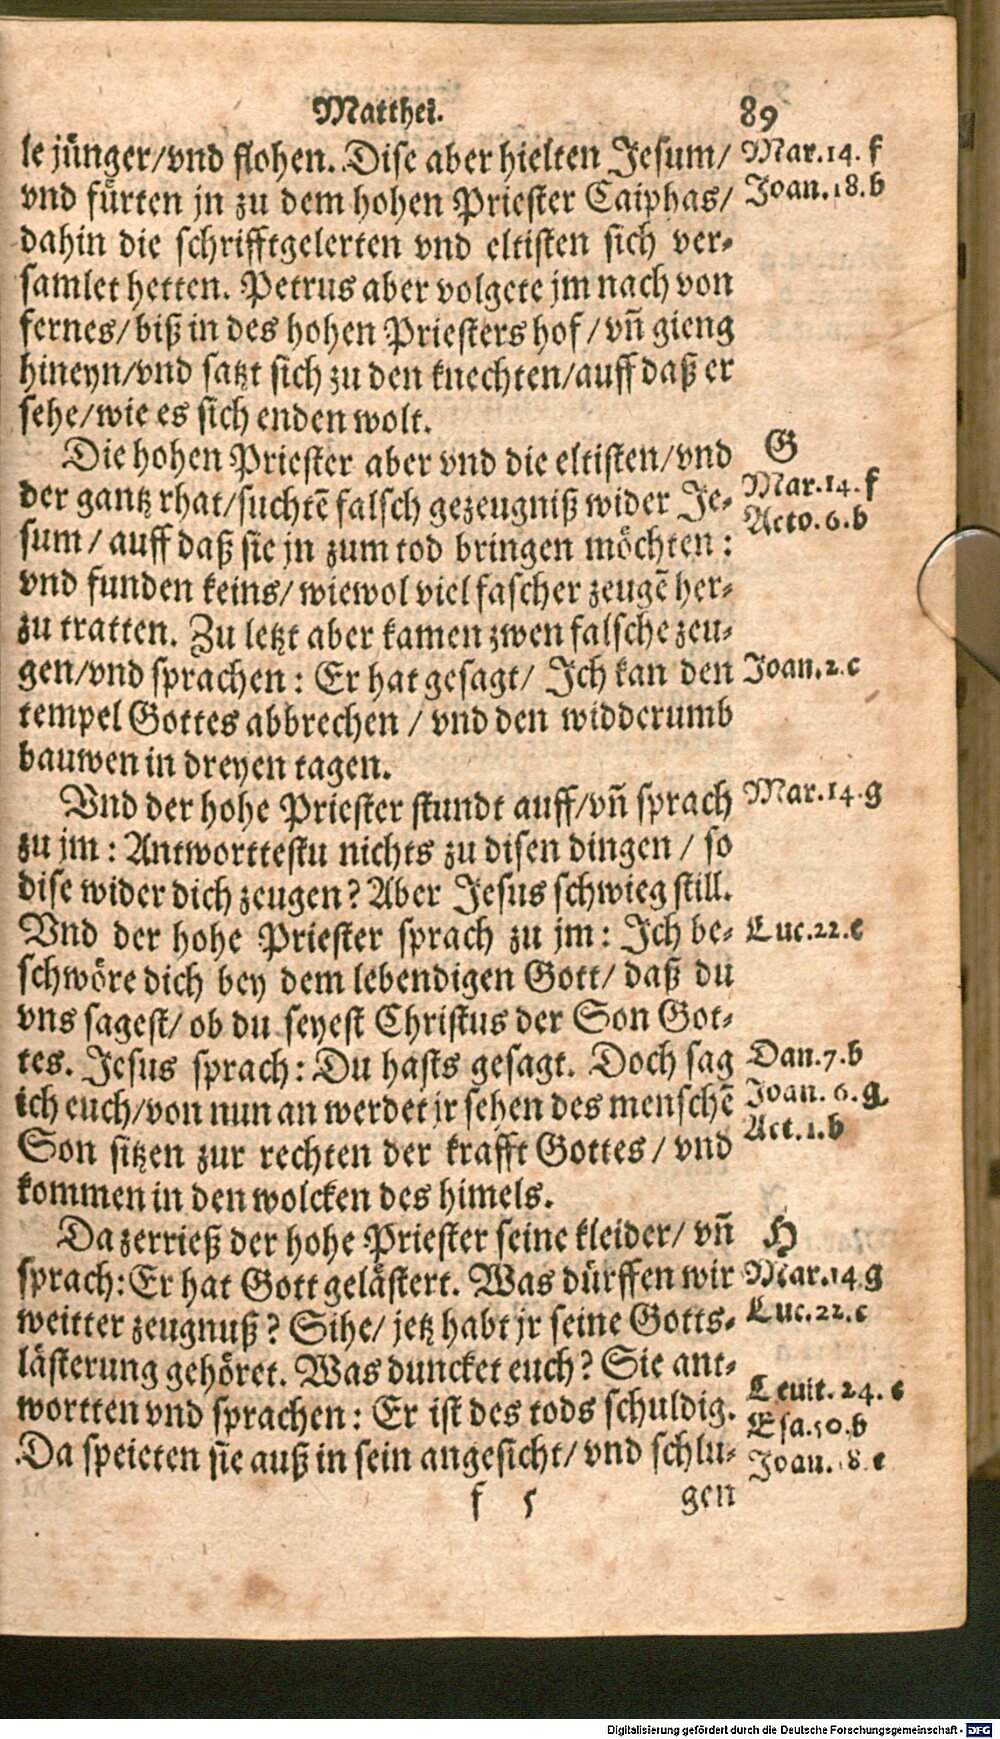 Matthei. 89
le jünger/vnd flohen. Dise aber hielten Jesum/ Mar.14. f
vnd fürten jn zu dem hohen Priester Caiphas/ Joan.18.b
dahin die schrifftgelerten vnd eltisten sich ver-
samlet hetten. Petrus aber volgete jm nach von
fernes/biß in des hohen Priesters hof/vñ gieng
hineyn/vnd satzt sich zu den knechten/auff daß er
sehe/wie es sich enden wolt.
Die hohen Priester aber vnd die eltisten/vnd G
der gantz rhat/suchtē falsch gezeugniß wider Je- Mar.14.f
sum/auff daß sie jn zum tod bringen möchten: Acto.6.b
vnd funden keins/wiewol viel fascher zeugē her-
zu tratten. Zu letzt aber kamen zwen falsche zeu-
gen/vnd sprachen: Er hat gesagt/ Ich kan den Joan.2.c
tempel Gottes abbrechen/vnd den widderumb
bauwen in dreyen tagen.
Vnd der hohe Priester stundt auff/vñ sprach Mar.14.g
zu jm: Antworttestu nichts zu disen dingen/so
dise wider dich zeugen? Aber Jesus schwieg still.
Vnd der hohe Priester sprach zu jm: Ich be- Luc.22.e
schwöre dich bey dem lebendigen Gott/daß du
vns sagest/ob du seyest Christus der Son Got-
tes. Jesus sprach: Du hasts gesagt. Doch sag Dan.7.b
ich euch/von nun an werdet jr sehen des menschē Joan.6.g
Son sitzen zur rechten der krafft Gottes/vnd Act.1.b
kommen in den wolcken des himels.
Da zerrieß der hohe Priester seine kleider/vñ H
sprach: Er hat Gott gelästert. Was dürffen wir Mar.14 g
weitter zeugnuß? Sihe/jetz habt jr seine Gotts- Luc.22.c
lästerung gehöret. Was duncket euch? Sie ant-
wortten vnd sprachen: Er ist des tods schuldig. Leuit.24.c
Esa.50.b
Da speieten sie auß in sein angesicht/vnd schlu- Joan.18.e
f 5 gen
Digitalisierung gefördert durch die Deutsche Forschungsgemeinschaft - DFG